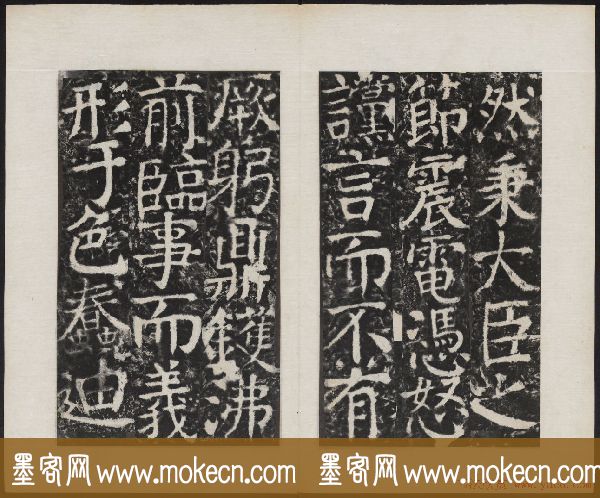 然秉大臣之
節震電馮怒
言而不有
厥躬鼎鑊沸
前臨事而義
形于色蠢迪
墨客网 www.mokecn.com
墨客网 www.mokecn.com